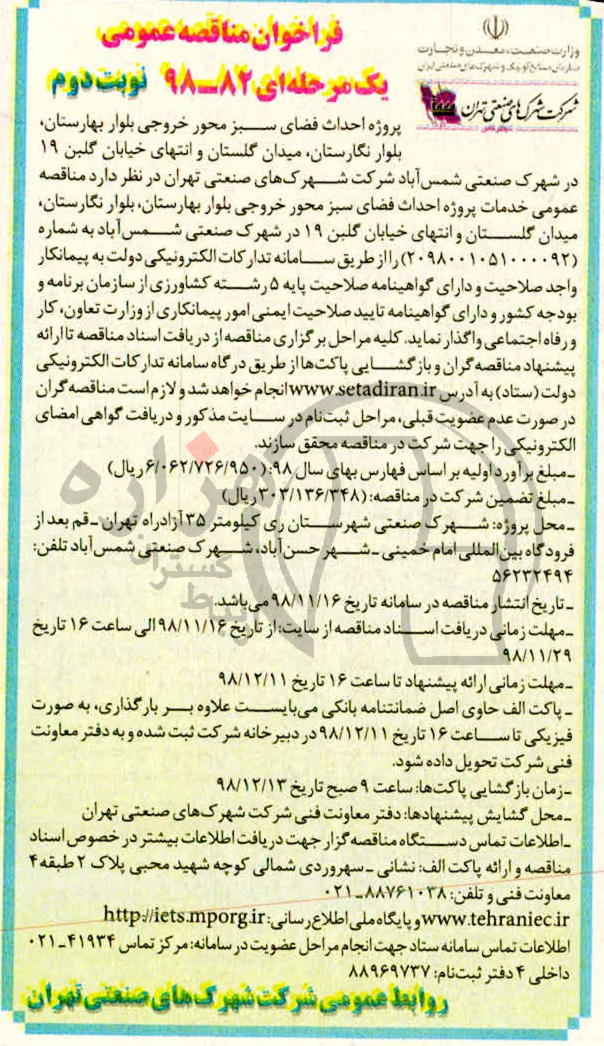 فراخوان مناقصه عمومی
یک مرحله‌ای ۸۲ــ۹۸ نوبت دوم
وزارت صنعت، معدن و تجارت
سازمان صنایع کوچک و شهرک‌های صنعتی ایران
شرکت شهرک‌های صنعتی تهران
پروژه احداث فضای سبز محور خروجی بلوار بهارستان،
بلوار نگارستان، میدان گلستان و انتهای خیابان گلبن ۱۹
در شهرک صنعتی شمس‌آباد شرکت شهرک‌های صنعتی تهران در نظر دارد مناقصه
عمومی خدمات پروژه احداث فضای سبز محور خروجی بلوار بهارستان، بلوار نگارستان،
میدان گلستان و انتهای خیابان گلبن ۱۹ در شهرک صنعتی شمس‌آباد به شماره
(۲۰۹۸۰۰۱۰۵۱۰۰۰۰۹۲) را از طریق سامانه تدارکات الکترونیکی دولت به پیمانکار
واجد صلاحیت و دارای گواهینامه صلاحیت پایه ۵ رشته کشاورزی از سازمان برنامه و
بودجه کشور و دارای گواهینامه تایید صلاحیت ایمنی امور پیمانکاری از وزارت تعاون، کار
و رفاه اجتماعی واگذار نماید. کلیه مراحل برگزاری مناقصه از دریافت اسناد مناقصه تا ارائه
پیشنهاد مناقصه‌گران و بازگشایی پاکت‌ها از طریق درگاه سامانه تدارکات الکترونیکی
دولت (ستاد) به آدرس www.setadiran.ir انجام خواهد شد و لازم است مناقصه‌گران
در صورت عدم عضویت قبلی، مراحل ثبت‌نام در سایت مذکور و دریافت گواهی امضای
الکترونیکی را جهت شرکت در مناقصه محقق سازند.
ـ مبلغ برآورد اولیه بر اساس فهارس بهای سال ۹۸: (۶/۰۶۲/۷۲۶/۹۵۰ ریال)
ـ مبلغ تضمین شرکت در مناقصه: (۳۰۳/۱۳۶/۳۴۸ ریال)
ـ محل پروژه: شهرک صنعتی شهرستان ری کیلومتر ۳۵ آزادراه تهران ـ قم بعد از
فرودگاه بین‌المللی امام خمینی ـ شهر حسن‌آباد، شهرک صنعتی شمس‌آباد تلفن:
۵۶۲۳۲۴۹۴
ـ تاریخ انتشار مناقصه در سامانه تاریخ ۹۸/۱۱/۱۶ می‌باشد.
ـ مهلت زمانی دریافت اسناد مناقصه از سایت: از تاریخ ۹۸/۱۱/۱۶ الی ساعت ۱۶ تاریخ
۹۸/۱۱/۲۹
ـ مهلت زمانی ارائه پیشنهاد تا ساعت ۱۶ تاریخ ۹۸/۱۲/۱۱
ـ پاکت الف حاوی اصل ضمانتنامه بانکی می‌بایست علاوه بر بارگذاری، به صورت
فیزیکی تا ساعت ۱۶ تاریخ ۹۸/۱۲/۱۱ در دبیرخانه شرکت ثبت شده و به دفتر معاونت
فنی شرکت تحویل داده شود.
ـ زمان بازگشایی پاکت‌ها: ساعت ۹ صبح تاریخ ۹۸/۱۲/۱۳
ـ محل گشایش پیشنهادها: دفتر معاونت فنی شرکت شهرک‌های صنعتی تهران
ـ اطلاعات تماس دستگاه مناقصه‌گزار جهت دریافت اطلاعات بیشتر در خصوص اسناد
مناقصه و ارائه پاکت الف: نشانی ـ سهروردی شمالی کوچه شهید محبی پلاک ۲ طبقه ۴
معاونت فنی و تلفن: ۸۸۷۶۱۰۳۸ـ۰۲۱
www.tehraniec.ir و پایگاه ملی اطلاع‌رسانی: http://iets.mporg.ir
اطلاعات تماس سامانه ستاد جهت انجام مراحل عضویت در سامانه: مرکز تماس ۴۱۹۳۴ـ۰۲۱
داخلی ۴ دفتر ثبت‌نام: ۸۸۹۶۹۷۳۷
روابط عمومی شرکت شهرک‌های صنعتی تهران
هزاره
گستران